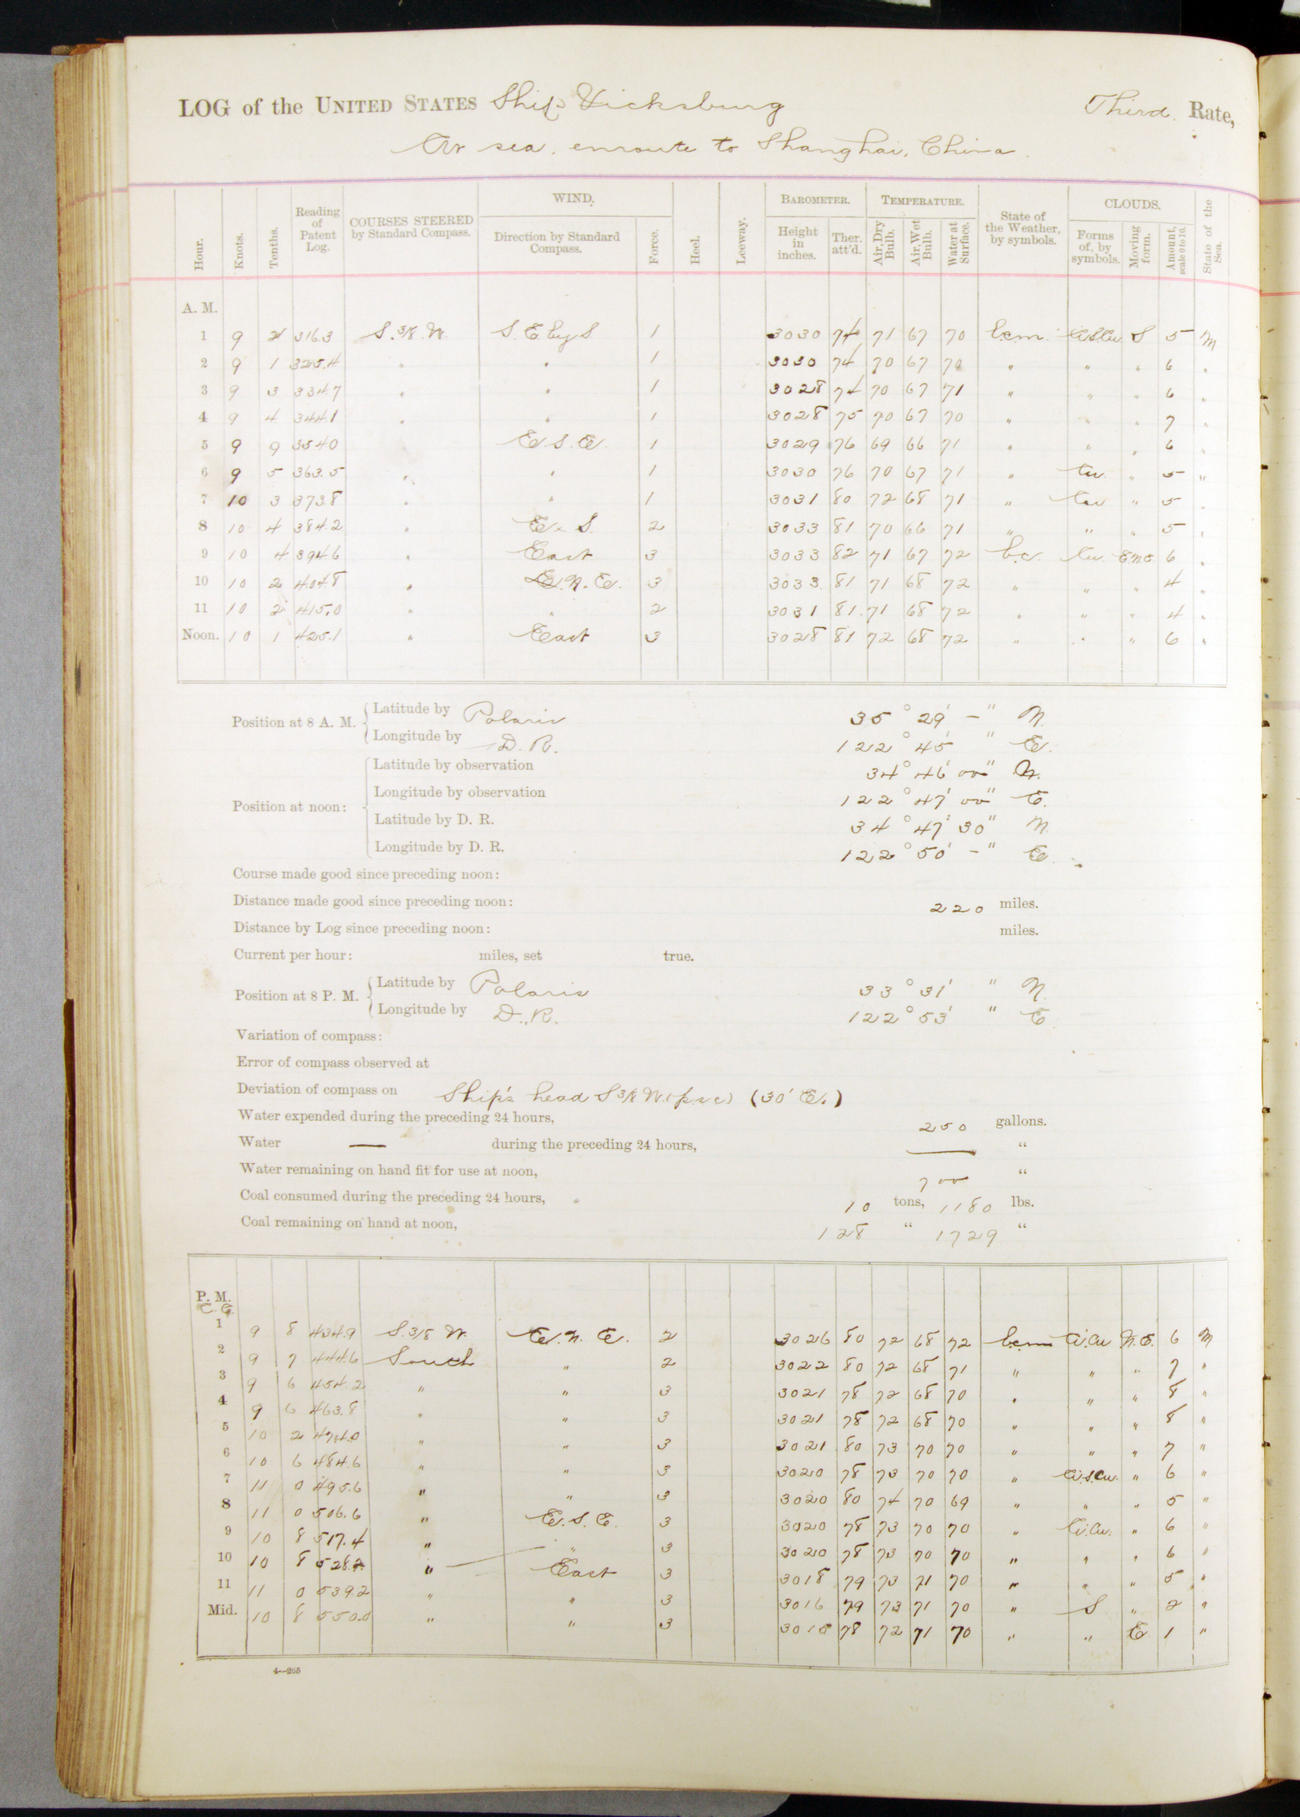 LOG of the UNITED STATES Ship Vicksburg Third Rate,
At sea, enroute to Shanghai, China.
Hour. Knots. Tenths. Reading of Patent Log. COURSES STEERED by Standard Compass. WIND. Direction by Standard Compass. Force. Heel. Leeway. BAROMETER. Height in inches. Ther. att'd. TEMPERATURE. Air, Dry Bulb. Air, Wet Bulb. Water at Surface. State of the Weather, by symbols. CLOUDS. Forms of, by symbols. Moving form. Amount, scale 0 to 10. State of the Sea.
A. M.
1 9 2 316.3 S. 3/8 W. S. E. by S 1 3030 74 71 67 70 b.c.m. S 5 M
2 9 1 325.4 " " 1 3030 74 70 67 70 " " " 6 "
3 9 3 334.7 " " 1 3028 74 70 67 71 " " " 6 "
4 9 4 344.1 " " 1 3028 75 70 67 70 " " " 7 "
5 9 9 354.0 E. S. E. 1 3029 76 69 66 71 " " " 6 "
6 9 5 363.5 " " 1 3030 76 70 67 71 " Cu. " 5 "
7 10 3 373.8 " " 1 3031 80 72 68 71 " Cu " 5 "
8 10 4 384.2 " E x S. 2 3033 81 70 66 71 " " " 5 "
9 10 4 394.6 " East 3 3033 82 71 67 72 b.c. Cu. E.N.E. 6 "
10 10 2 404.8 " E. N. E. 3 3033 81 71 68 72 " " " 4 "
11 10 2 415.0 " " 2 3031 81 71 68 72 " " " 4 "
Noon. 10 1 425.1 " East 3 3028 81 72 68 72 " " " 6 "
Position at 8 A. M. Latitude by Polaris 35° 29' –" N.
Longitude by D. R. 122° 45' " E.
Position at noon: Latitude by observation 34° 46' 00" N.
Longitude by observation 122° 47' 00" E.
Latitude by D. R. 34° 47' 30" N
Longitude by D. R. 122° 50' –" E.
Course made good since preceding noon:
Distance made good since preceding noon: 220 miles.
Distance by Log since preceding noon: miles.
Current per hour: miles, set true.
Position at 8 P. M. Latitude by Polaris 33° 31' " N.
Longitude by D. R. 122° 53' " E
Variation of compass:
Error of compass observed at
Deviation of compass on Ship's head S 3/8 W. (p.s.c.) (30' E.)
Water expended during the preceding 24 hours, 250 gallons.
Water — during the preceding 24 hours, — "
Water remaining on hand fit for use at noon, 700 "
Coal consumed during the preceding 24 hours, 10 tons, 1180 lbs.
Coal remaining on hand at noon, 128 " 1729 "
P. M.
1 9 8 434.9 S. 3/8 W. E. N. E. 2 3026 80 72 68 72 b.c.m Ci.Cu N.E. 6 M
2 9 7 444.6 South " 2 3022 80 72 68 71 " " " 7 "
3 9 6 454.2 " " 3 3021 78 72 68 70 " " " 8 "
4 9 6 463.8 " " 3 3021 78 72 68 70 " " " 8 "
5 10 2 474.0 " " 3 3021 80 73 70 70 " " " 7 "
6 10 6 484.6 " " 3 3020 78 73 70 70 " Ci.S.Cu. " 6 "
7 11 0 495.6 " " 3 3020 80 74 70 69 " " " 5 "
8 11 0 506.6 " E. S. E. 3 3020 78 73 70 70 " Ci.Cu. " 6 "
9 10 8 517.4 " " 3 3020 78 73 70 70 " " " 6 "
10 10 8 528.2 " East 3 3018 79 73 71 70 " " " 5 "
11 11 0 539.2 " " 3 3016 79 73 71 70 " S " 2 "
Mid. 10 8 550.0 " " 3 3015 78 72 71 70 " " E 1 "
4—265